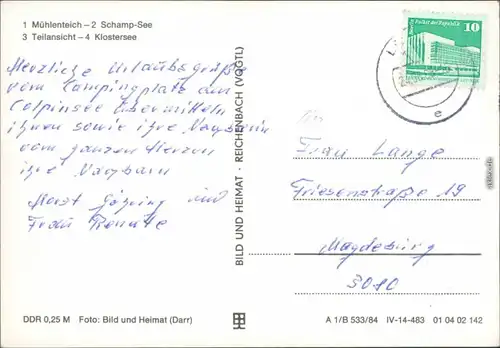 1 Mühlenteich – 2 Schamp-See
3 Teilansicht – 4 Klostersee
Herzliche Urlaubsgrüße
vom Campingplatz am
Colpinsee übermitteln
ihnen sowie ihre Nagbarin
vom ganzen Herzen
ihre Nagbarn
Horst und
Frau Renate
BILD UND HEIMAT · REICHENBACH (VOGTL)
Palast der Republik
10
e
An
Frau Lange
Friesenstraße 19
Magdeburg
3010
DDR 0,25 M Foto: Bild und Heimat (Darr)
A 1/B 533/84 IV-14-483 01 04 02 142